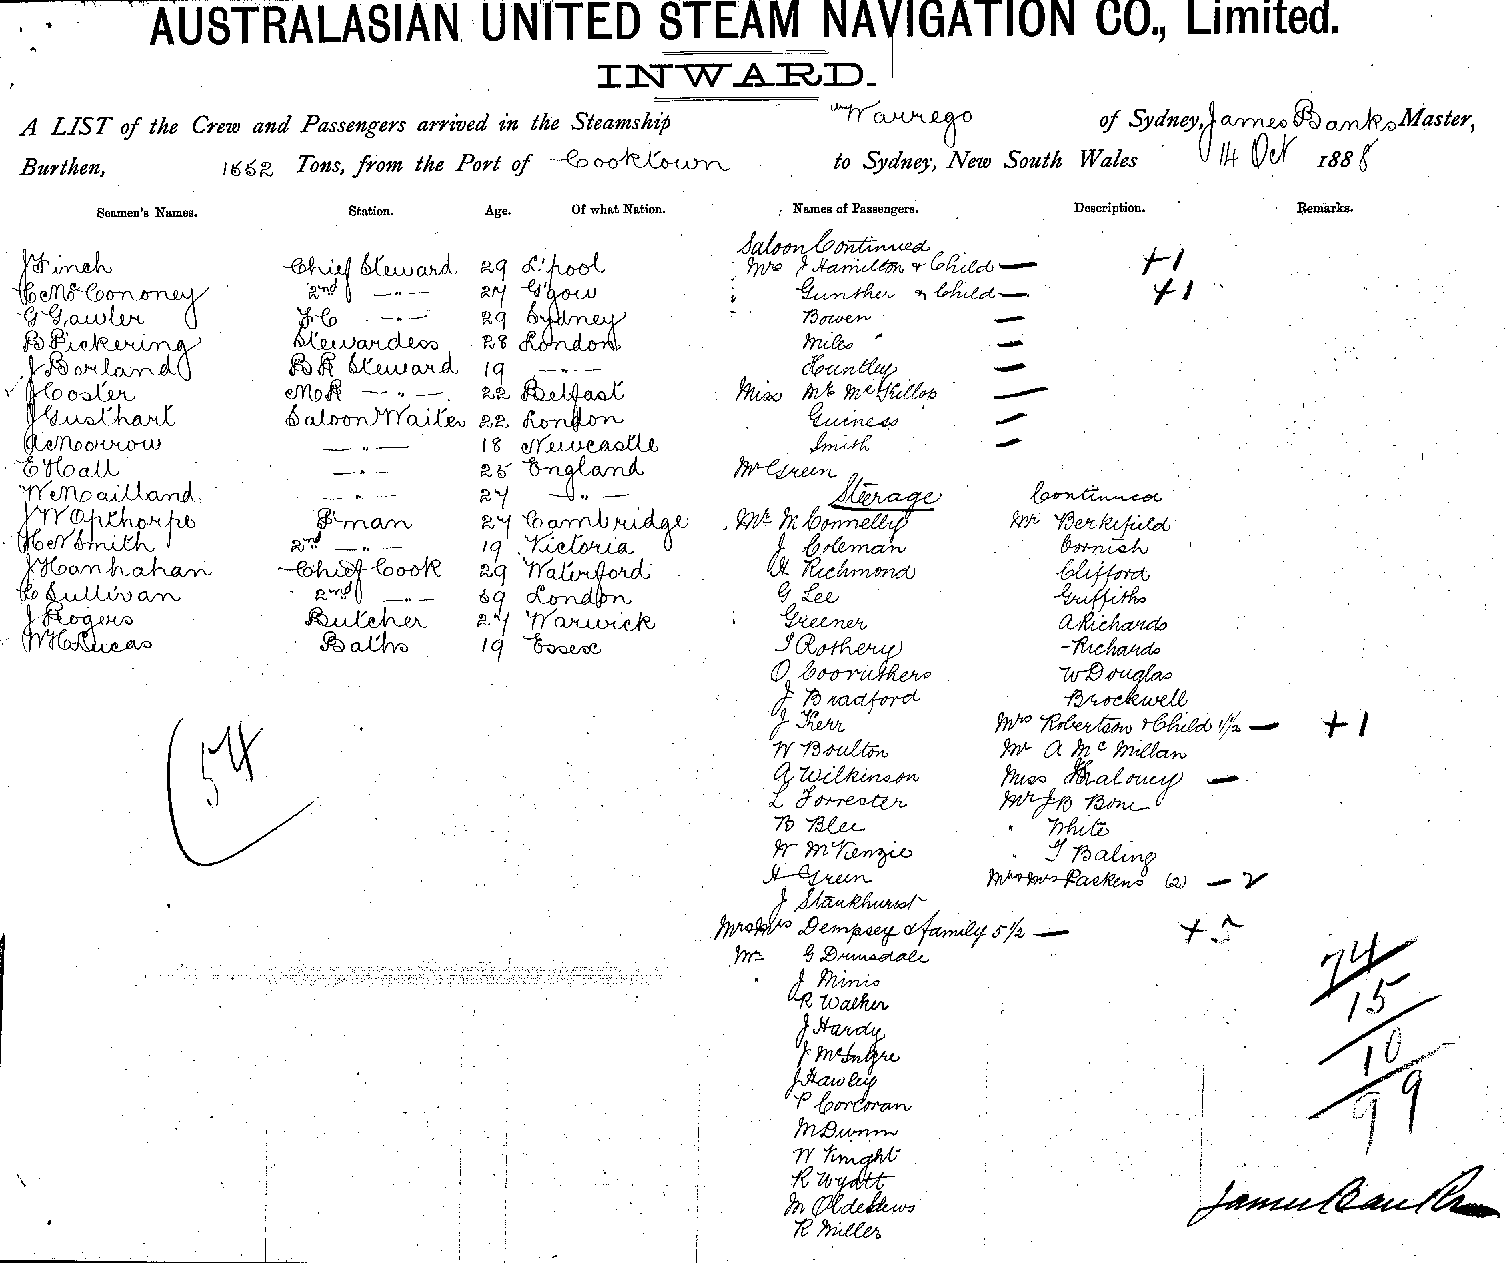 AUSTRALASIAN UNITED STEAM NAVIGATION CO., Limited.
INWARD.
A LIST of the Crew and Passengers arrived in the Steamship Warrego of Sydney, James Banks Master,
Burthen, 1552 Tons, from the Port of Cooktown to Sydney, New South Wales 14 Oct 1888
Seamen's Names. Station. Age. Of what Nation. Names of Passengers. Description. Remarks.
J Finch Chief Steward 29 L'pool
C McCononey 2nd —"— 27 G'gow
G Gawler F C —"— 29 Sydney
B Pickering Stewardess 28 London
J Borland B R Steward 19 —"—
J Coster M R —"— 22 Belfast
J Gusthart Saloon Waiter 22 London
A Morrow —"— 18 Newcastle
E Hall —"— 25 England
W Mailland —"— 27 —"—
J W Apthorpe P'man 27 Cambridge
H N Smith 2nd —"— 19 Victoria
J Hanhahan Chief Cook 29 Waterford
C Sullivan 2nd —"— 39 London
J Rogers Butcher 27 Warwick
W H Lucas Baths 19 Essex
(54
Saloon Continued
Mrs J Hamilton & Child — +1
" Gunther & Child — +1
" Bowen —
Miles " —
Huntley —
Miss Mc McKillop —
Guiness —
Smith —
Mr Green
Sterage Continued
Mr M Connelly Mr Berkefield
J Coleman Cornish
H Richmond Clifford
G Lee Griffiths
Greener A Richards
J Rothery - Richards
O Cooruthers W Douglas
J Bradford Brockwell
J Kerr Mrs Robertson & Child 1½ — +1
W Boulton Mr A McMillan
A Wilkinson Miss Maloney —
L Forrester Mr J B Bone
B Blee " White
W McKenzie " T Baling
H Green Mr & Mrs Paskens (2) — 2
J Stankhurst
Mr & Mrs Dempsey & family 5½ — +5
Mr G Drunsdale
" J Minis
R Walker
J Hardy
J McIntyre
J Hawley
P Corcoran
M Dunn
W Knight
R Wyatt
M Oldehews
R Miller
74
15
10
99
James Banks